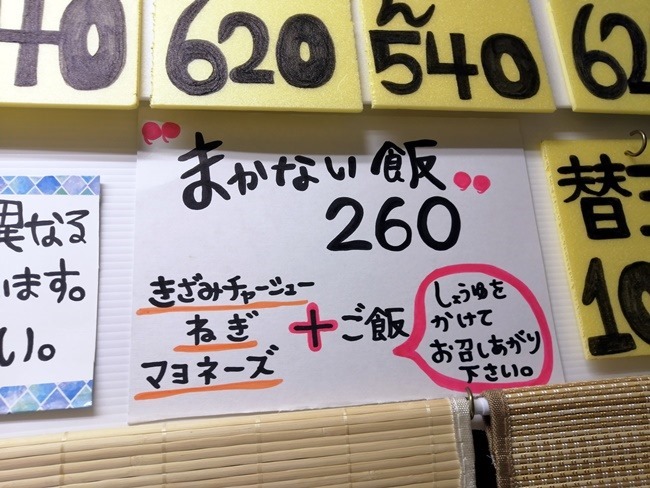 620
ん
540
62
〝まかない飯〟
260
きざみチャーシュー
ねぎ
マヨネーズ
+ご飯
しょうゆを
かけて
お召しあがり
下さい。
異なる
います。
い。
替
10